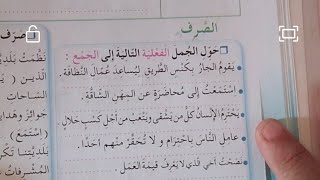 الصَّرف
حوّل الجُمل الفعْلية التالية إلى الجَمْع :
- يَقومُ الجارُ بكَنْس الطَّريق ليُساعدَ عُمّالَ النَّظافَة.
- اسْتَمَعْتُ إلى مُحاضَرَة عن المِهَن الشّاقَّة.
- يَحْتَرِمُ الإنْسانُ كُلَّ مَن يَشْقى ويَتْعَبُ من أجْل كَسْبٍ حَلال
- عامِل النّاسَ باحْتِرام و لا تُحَقِّرْ منْهم أحَدًا.
- نَصَحْتُ أخي الذي لا يَعْرفُ قيمَةَ العَمَل.
صرف
نَظَّمَتْ
الّذين
السّاحات
(اسْتَمَعَ)
المُشْرفات